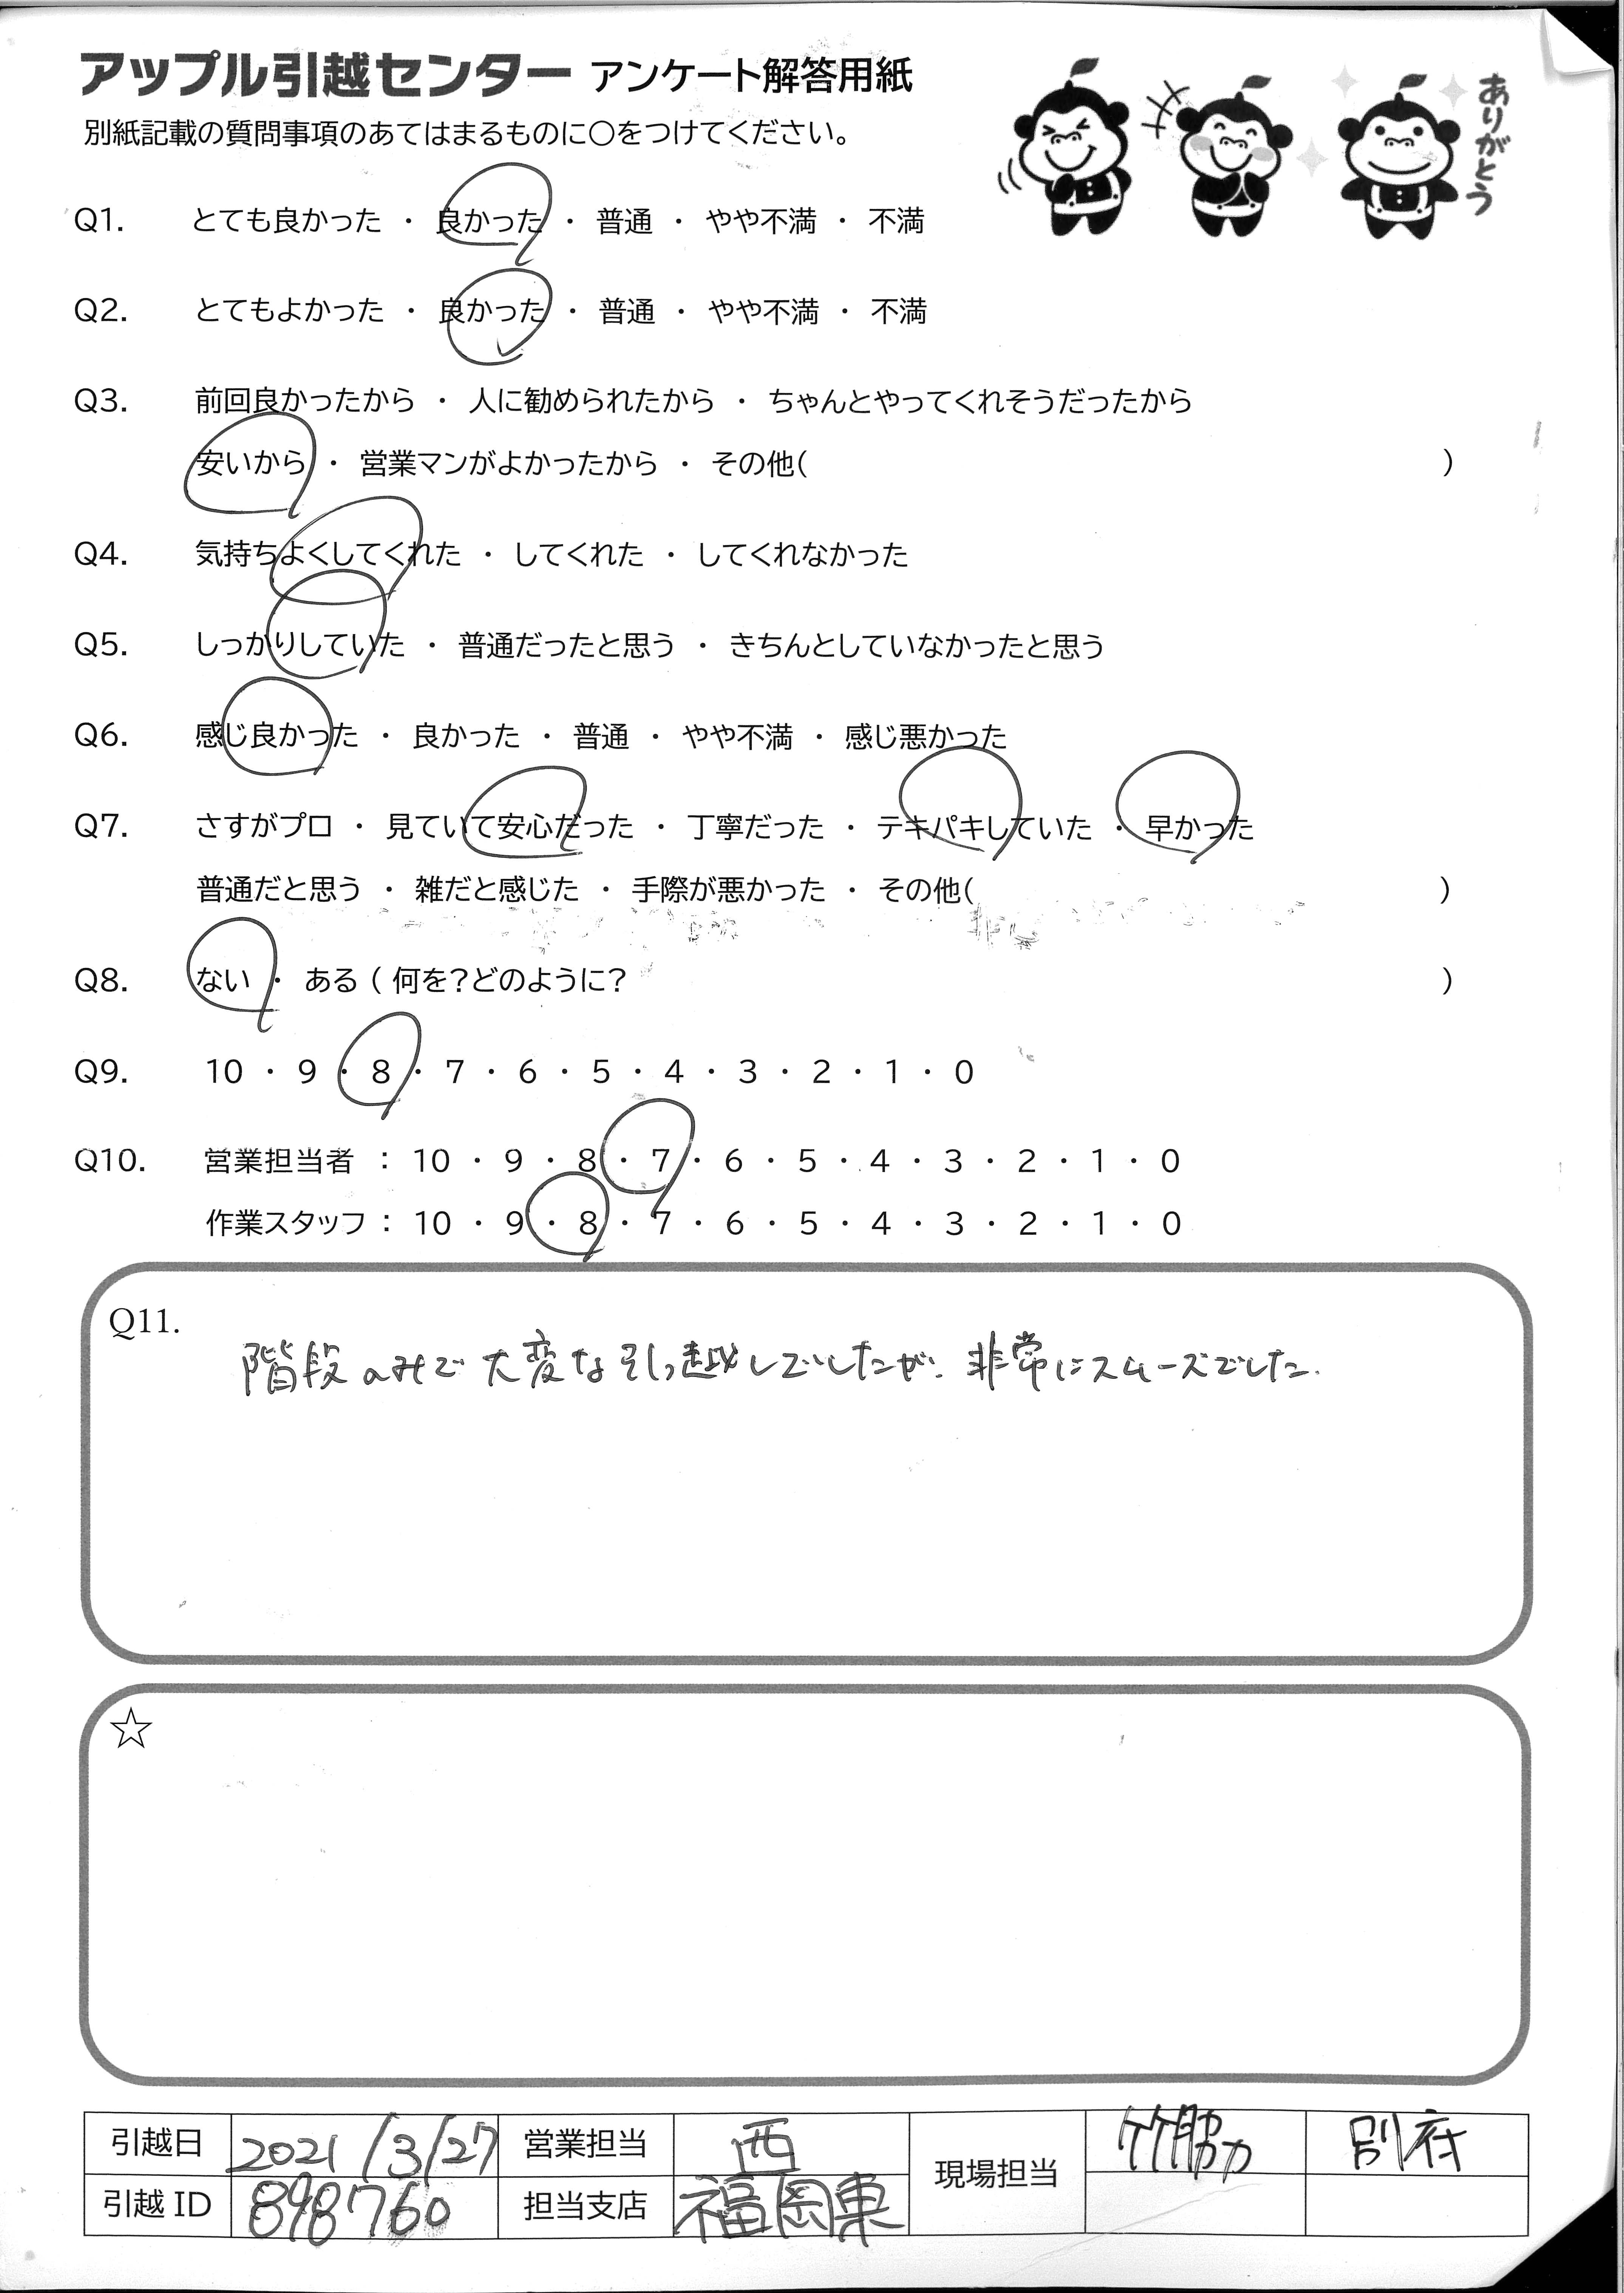 アップル引越センター アンケート解答用紙
ありがとう
別紙記載の質問事項のあてはまるものに〇をつけてください。
Q1. とても良かった ・ 良かった ・ 普通 ・ やや不満 ・ 不満
Q2. とてもよかった ・ 良かった ・ 普通 ・ やや不満 ・ 不満
Q3. 前回良かったから ・ 人に勧められたから ・ ちゃんとやってくれそうだったから
安いから ・ 営業マンがよかったから ・ その他( )
Q4. 気持ちよくしてくれた ・ してくれた ・ してくれなかった
Q5. しっかりしていた ・ 普通だったと思う ・ きちんとしていなかったと思う
Q6. 感じ良かった ・ 良かった ・ 普通 ・ やや不満 ・ 感じ悪かった
Q7. さすがプロ ・ 見ていて安心だった ・ 丁寧だった ・ テキパキしていた ・ 早かった
普通だと思う ・ 雑だと感じた ・ 手際が悪かった ・ その他( )
Q8. ない ・ ある ( 何を?どのように? )
Q9. 10 ・ 9 ・ 8 ・ 7 ・ 6 ・ 5 ・ 4 ・ 3 ・ 2 ・ 1 ・ 0
Q10. 営業担当者 : 10 ・ 9 ・ 8 ・ 7 ・ 6 ・ 5 ・ 4 ・ 3 ・ 2 ・ 1 ・ 0
作業スタッフ : 10 ・ 9 ・ 8 ・ 7 ・ 6 ・ 5 ・ 4 ・ 3 ・ 2 ・ 1 ・ 0
Q11.
階段のみで大変な引っ越しでしたが、非常にスムーズでした.
☆
引越日 2021/3/27 営業担当 西 現場担当 竹脇 別府
引越 ID 898760 担当支店 福岡東